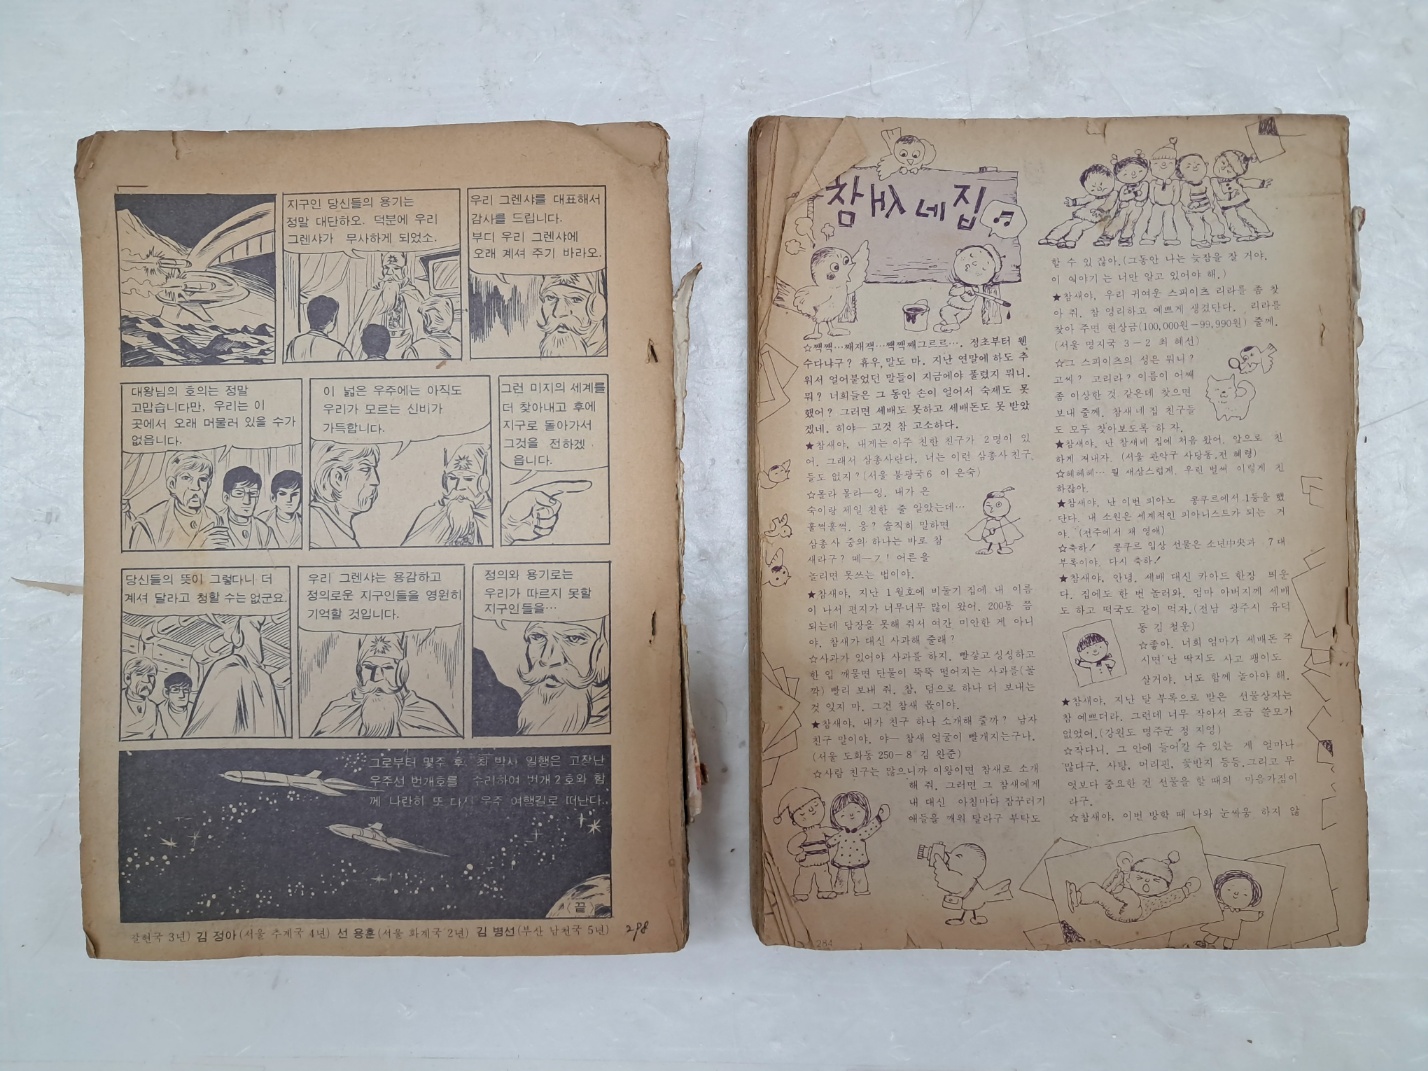 지구인 당신들의 용기는
정말 대단하오. 덕분에 우리
그렌샤가 무사하게 되었소.
우리 그렌샤를 대표해서
감사를 드립니다.
부디 우리 그렌샤에
오래 계셔 주기 바라오.
대왕님의 호의는 정말
고맙습니다만, 우리는 이
곳에서 오래 머물러 있을 수가
없읍니다.
이 넓은 우주에는 아직도
우리가 모르는 신비가
가득합니다.
그런 미지의 세계를
더 찾아내고 후에
지구로 돌아가서
그것을 전하겠
읍니다.
당신들의 뜻이 그렇다니 더
계셔 달라고 청할 수는 없군요.
우리 그렌샤는 용감하고
정의로운 지구인들을 영원히
기억할 것입니다.
정의와 용기로는
우리가 따르지 못할
지구인들을…
그로부터 몇주 후, 최 박사 일행은 고장난
우주선 번개호를 수리하여 번개 2호와 함
께 나란히 또 다시 우주 여행길로 떠난다..
〈끝〉
3년) 김 정아(서울 추계국 4년) 선 용훈(서울 화계국 2년) 김 병선(부산 남천국 5년)
298
참새네집
☆짹짹…째재잭…짹짹째그르르…. 정초부터 웬
수다냐구? 휴우, 말도 마. 지난 연말에 하도 추
워서 얼어붙었던 말들이 지금에야 풀렸지 뭐니.
뭐? 너희들은 그 동안 손이 얼어서 숙제도 못
했어? 그러면 세배도 못하고 세배돈도 못 받았
겠네. 히야— 고것 참 고소하다.
★참새야, 내게는 아주 친한 친구가 2명이 있
어. 그래서 삼총사란다. 너는 이런 삼총사 친구
들도 없지? (서울 불광국 6 이 은숙)
☆몰라 몰라—잉. 내가 은
숙이랑 제일 친한 줄 알았는데…
훌쩍훌쩍. 응? 솔직히 말하면
삼총사 중의 하나는 바로 참
새라구? 떼—끼! 어른을
놀리면 못쓰는 법이야.
★참새야, 지난 1월호에 비둘기 집에 내 이름
이 나서 편지가 너무너무 많이 왔어. 200통 쯤
되는데 답장을 못해 줘서 여간 미안한 게 아니
야. 참새가 대신 사과해 줄래?
☆사과가 있어야 사과를 하지. 빨갛고 싱싱하고
한 입 깨물면 단물이 뚝뚝 떨어지는 사과를(꿀
꺽) 빨리 보내 줘. 참, 덤으로 하나 더 보내는
것 잊지 마. 그건 참새 몫이야.
★참새야, 내가 친구 하나 소개해 줄까? 남자
친구 말이야. 야— 참새 얼굴이 빨개지는구나.
(서울 도화동 250-8 김 완준)
☆사람 친구는 많으니까 이왕이면 참새로 소개
해 줘. 그러면 그 참새에게
내 대신 아침마다 잠꾸러기
애들을 깨워 달라구 부탁도
할 수 있잖아.(그동안 나는 늦잠을 잘 거야,
이 이야기는 너만 알고 있어야 해.)
★참새야, 우리 귀여운 스피이츠 리라를 좀 찾
아 줘. 참 영리하고 예쁘게 생겼단다. 리라를
찾아 주면 현상금(100,000원-99,990원) 줄께.
(서울 명지국 3-2 최 해선)
☆그 스피이츠의 성은 뭐니?
고씨? 고리라? 이름이 어째
좀 이상한 것 같은데 찾으면
보내 줄께. 참새네 집 친구들
도 모두 찾아보도록 하 자.
★참새야, 난 참새네 집에 처음 왔어. 앞으로 친
하게 지내자. (서울 관악구 사당동, 전 혜령)
☆헤헤헤… 뭘 새삼스럽게. 우린 벌써 이렇게 친
하잖아.
★참새야, 난 이번 피아노 콩쿠르에서 1등을 했
단다. 내 소원은 세계적인 피아니스트가 되는 거
야.
☆축하! 콩쿠르 입상 선물은 소년中央과 7대
부록이야. 다시 축하!
★참새야, 안녕. 세배 대신 카아드 한장 띄운
다. 집에도 한 번 놀러와. 엄마 아버지께 세배
도 하고 떡국도 같이 먹자.(전남 광주시 유덕
동 김 철운)
☆좋아. 너희 엄마가 세배돈 주
시면 난 딱지도 사고 팽이도
살거야. 너도 함께 놀아야 해.
★참새야, 지난 달 부록으로 받은 선물상자는
참 예쁘더라. 그런데 너무 작아서 조금 쓸모가
없었어.(강원도 명주군 정 지영)
☆작다니. 그 안에 들어갈 수 있는 게 얼마나
많다구. 사탕, 머리핀, 꽃반지 등등, 그리고 무
엇보다 중요한 건 선물을 할 때의 마음가짐이
라구.
☆참새야, 이번 방학 때 나와 눈싸움 하지 않